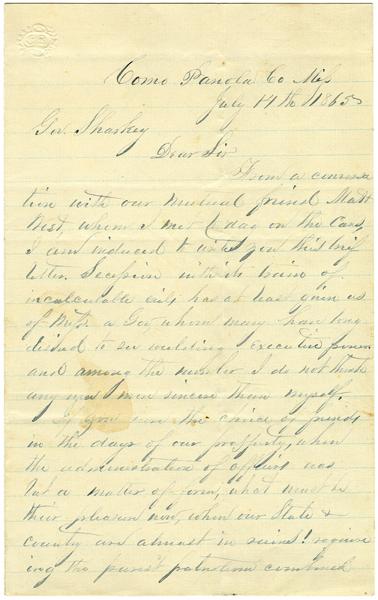 Como Panola Co Miss
July 14th 1865
Gov. Sharkey
Dear Sir
From a conversa
tion with our mutual friend Matt
West, whom I met to day on the Cars,
I am induced to write you this brief
letter. Secession with its train of
incalculable evils has at last given us
of Miss. a Gov whom many have long
desired to see wielding executive power
and among the number I do not think
any was more sincere than myself.
If you were the choice of friends
in the days of our prosperity, when
the administration of affairs was
but a matter of form, what must be
their pleasure now, when our State &
County are almost in ruins! requir
ing the purest patriotism combined